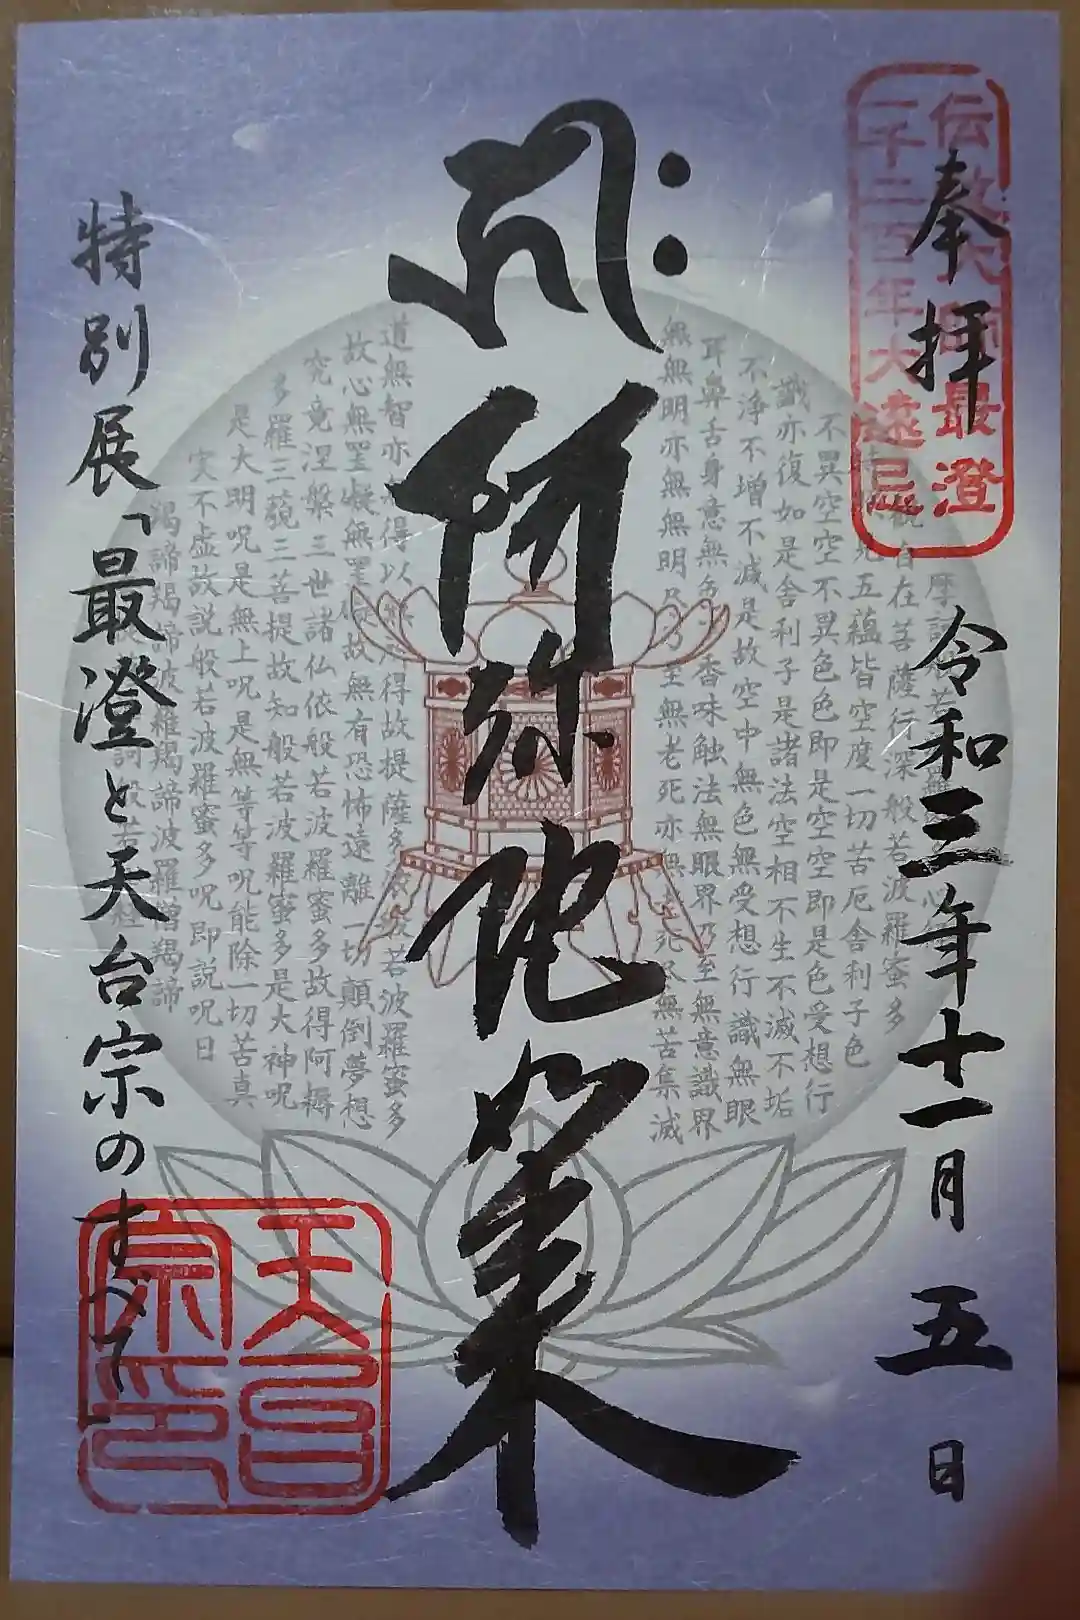 伝教大師最澄
一千二百年大遠忌
奉拝
令和三年十一月五日
摩訶般若波羅蜜多心経
観自在菩薩行深般若波羅蜜多
時照見五蘊皆空度一切苦厄舎利子色
不異空空不異色色即是空空即是色受想行
識亦復如是舎利子是諸法空相不生不滅不垢
不浄不増不減是故空中無色無受想行識無眼
耳鼻舌身意無色声香味触法無眼界乃至無意識界
無無明亦無無明尽乃至無老死亦無老死尽無苦集滅
𑖮𑖿𑖨𑖱𑖾
阿弥陀如来
道無智亦無得以無所得故提薩多依般若波羅蜜多
故心無罣礙無罣礙故無有恐怖遠離一切顛倒夢想
究竟涅槃三世諸仏依般若波羅蜜多故得阿耨
多羅三藐三菩提故知般若波羅蜜多是大神呪
是大明呪是無上呪是無等等呪能除一切苦真
実不虚故説般若波羅蜜多呪即説呪曰
羯諦羯諦波羅羯諦波羅僧羯諦
訶般若心経
特別展「最澄と天台宗のすべて」
天台
宗印